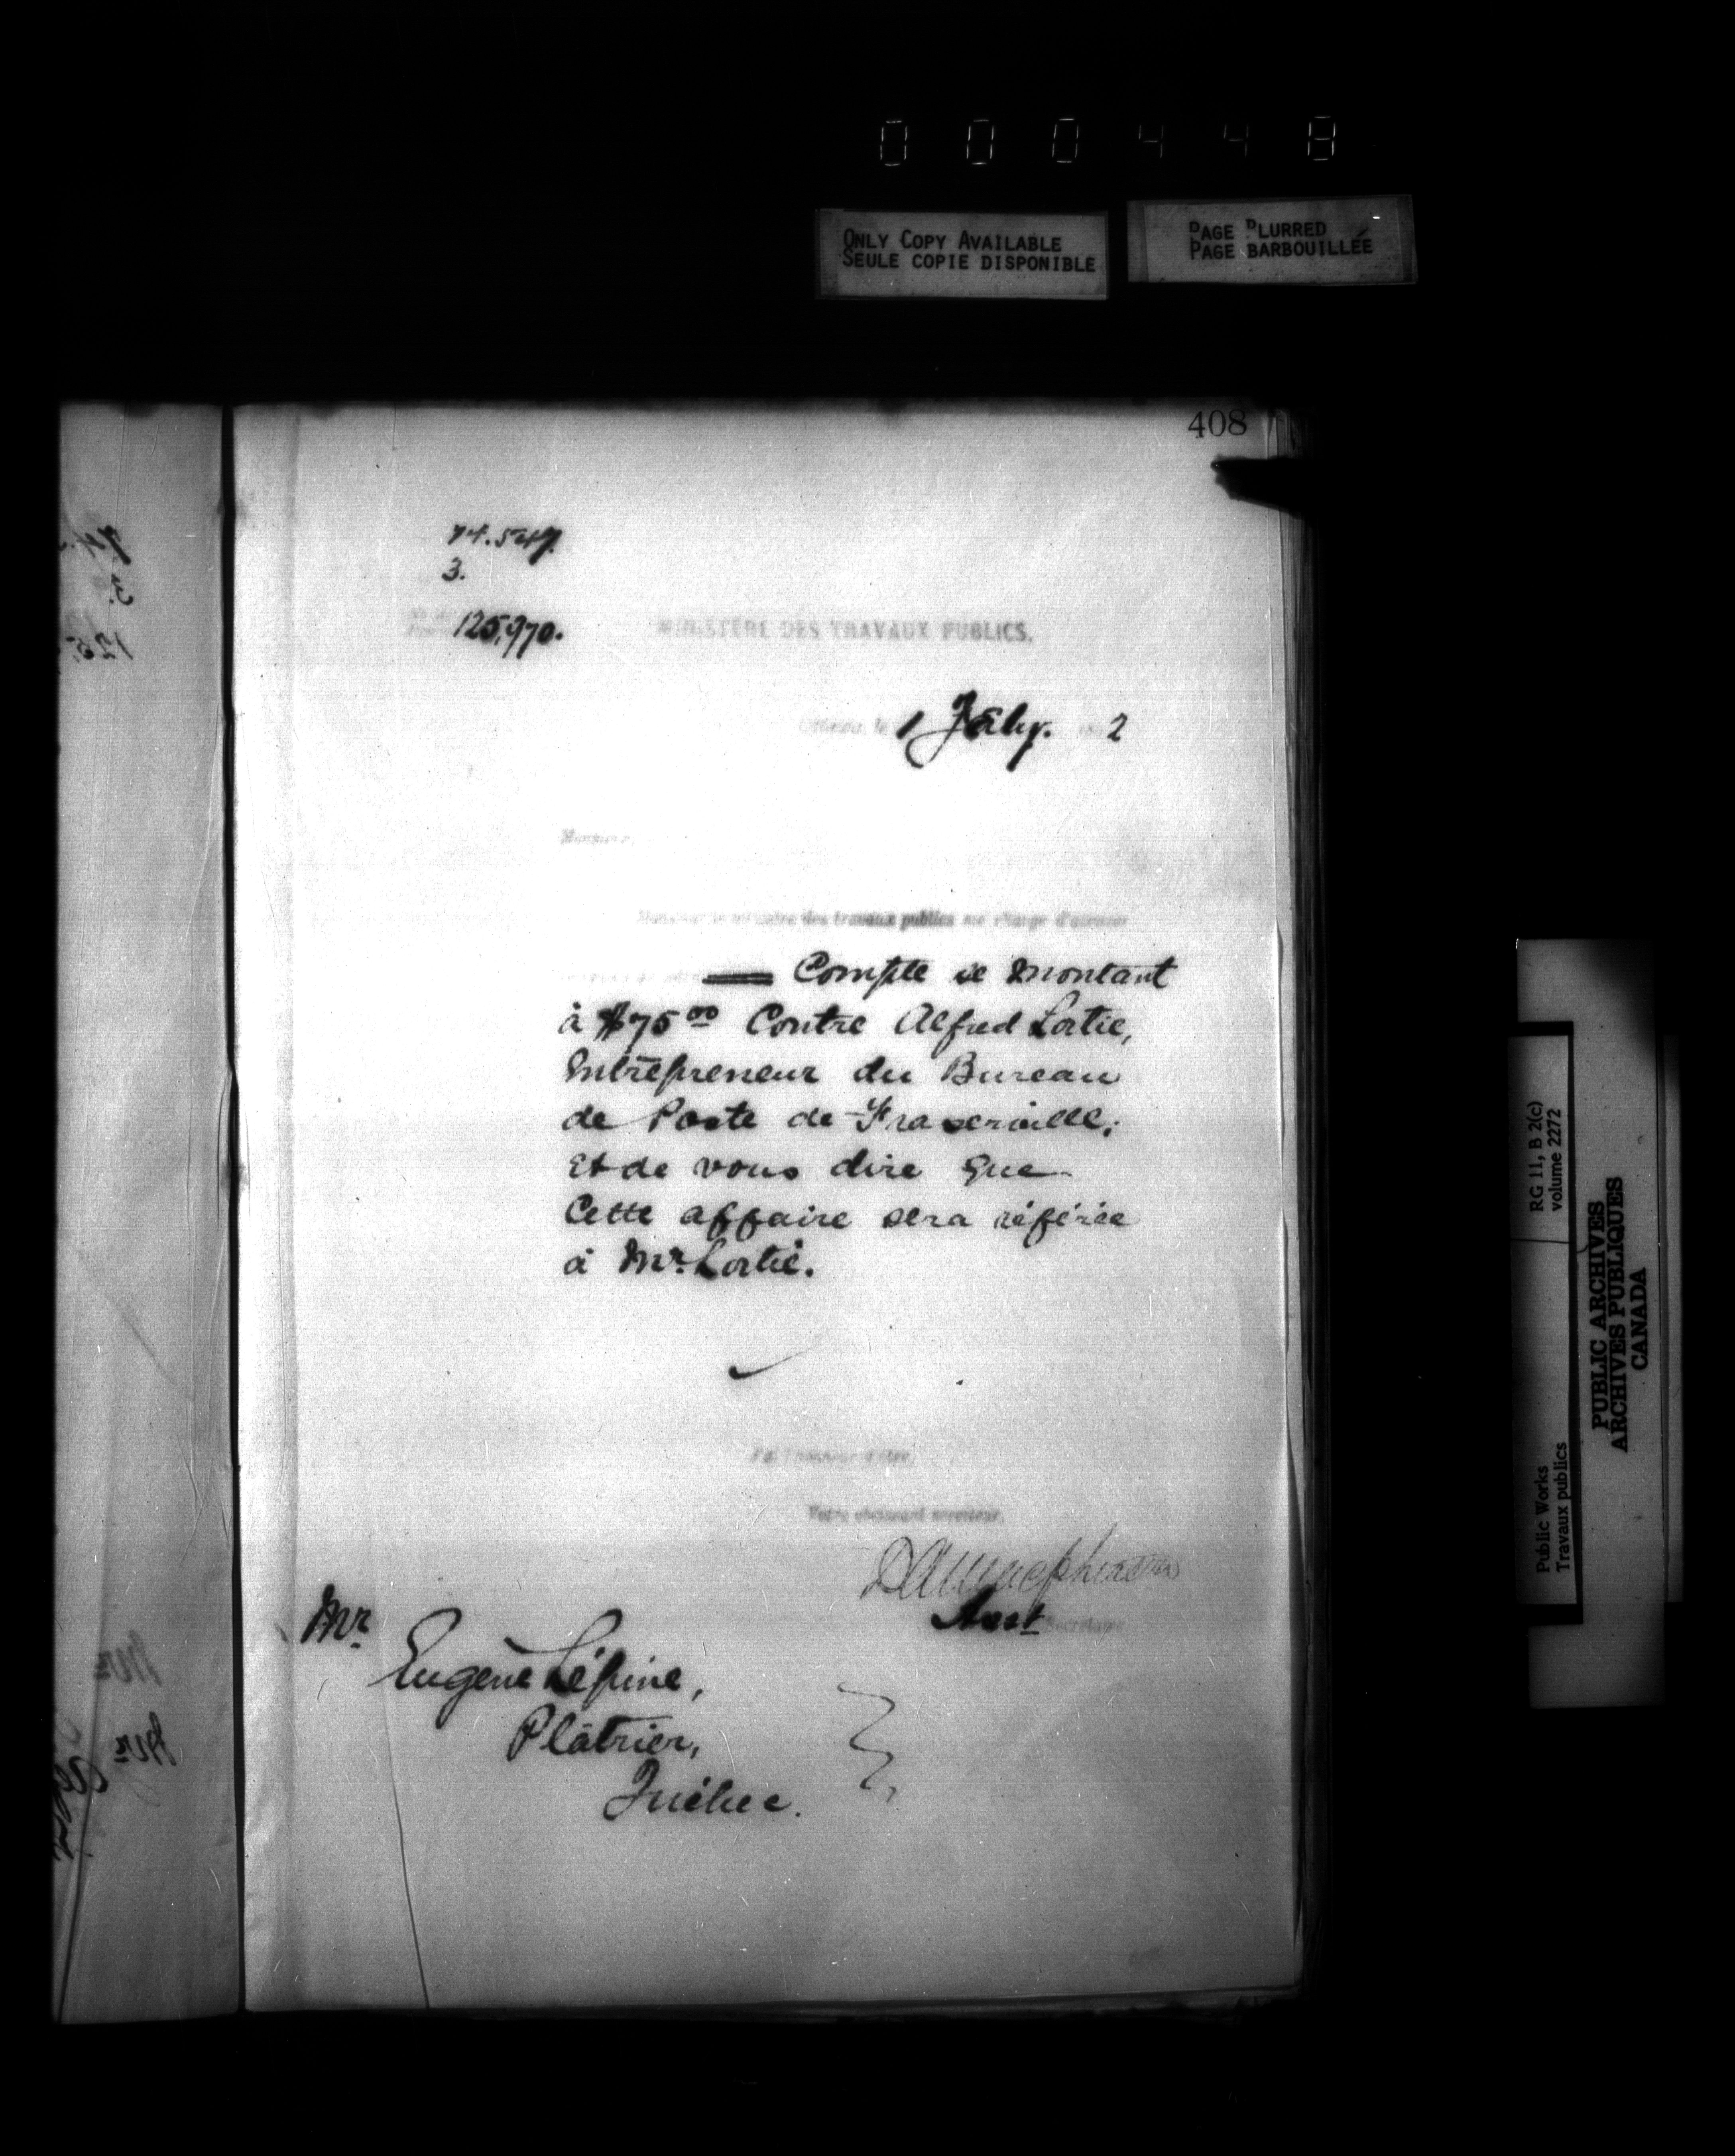 000448
ONLY COPY AVAILABLE
SEULE COPIE DISPONIBLE
PAGE BLURRED
PAGE BARBOUILLÉE
408
74.547.
3.
125,970.
MINISTÈRE DES TRAVAUX PUBLICS.
Ottawa, le 1 Feby. 2
Monsieur,
Monsieur le ministre des travaux publics me charge d'accuser
Compte se montant
à $75.00 Contre Alfred Lortie,
Entrepreneur du Bureau
de Poste de Fraserville;
Et de vous dire que
Cette affaire sera référée
à Mr. Lortie.
J'ai l'honneur d'être,
Votre obéissant serviteur,
D A Macpherson
Asst Secrétaire
Mr
Eugène Lépine,
Plâtrier,
Québec.
RG 11, B 2(c)
volume 2272
Public Works
Travaux publics
PUBLIC ARCHIVES
ARCHIVES PUBLIQUES
CANADA